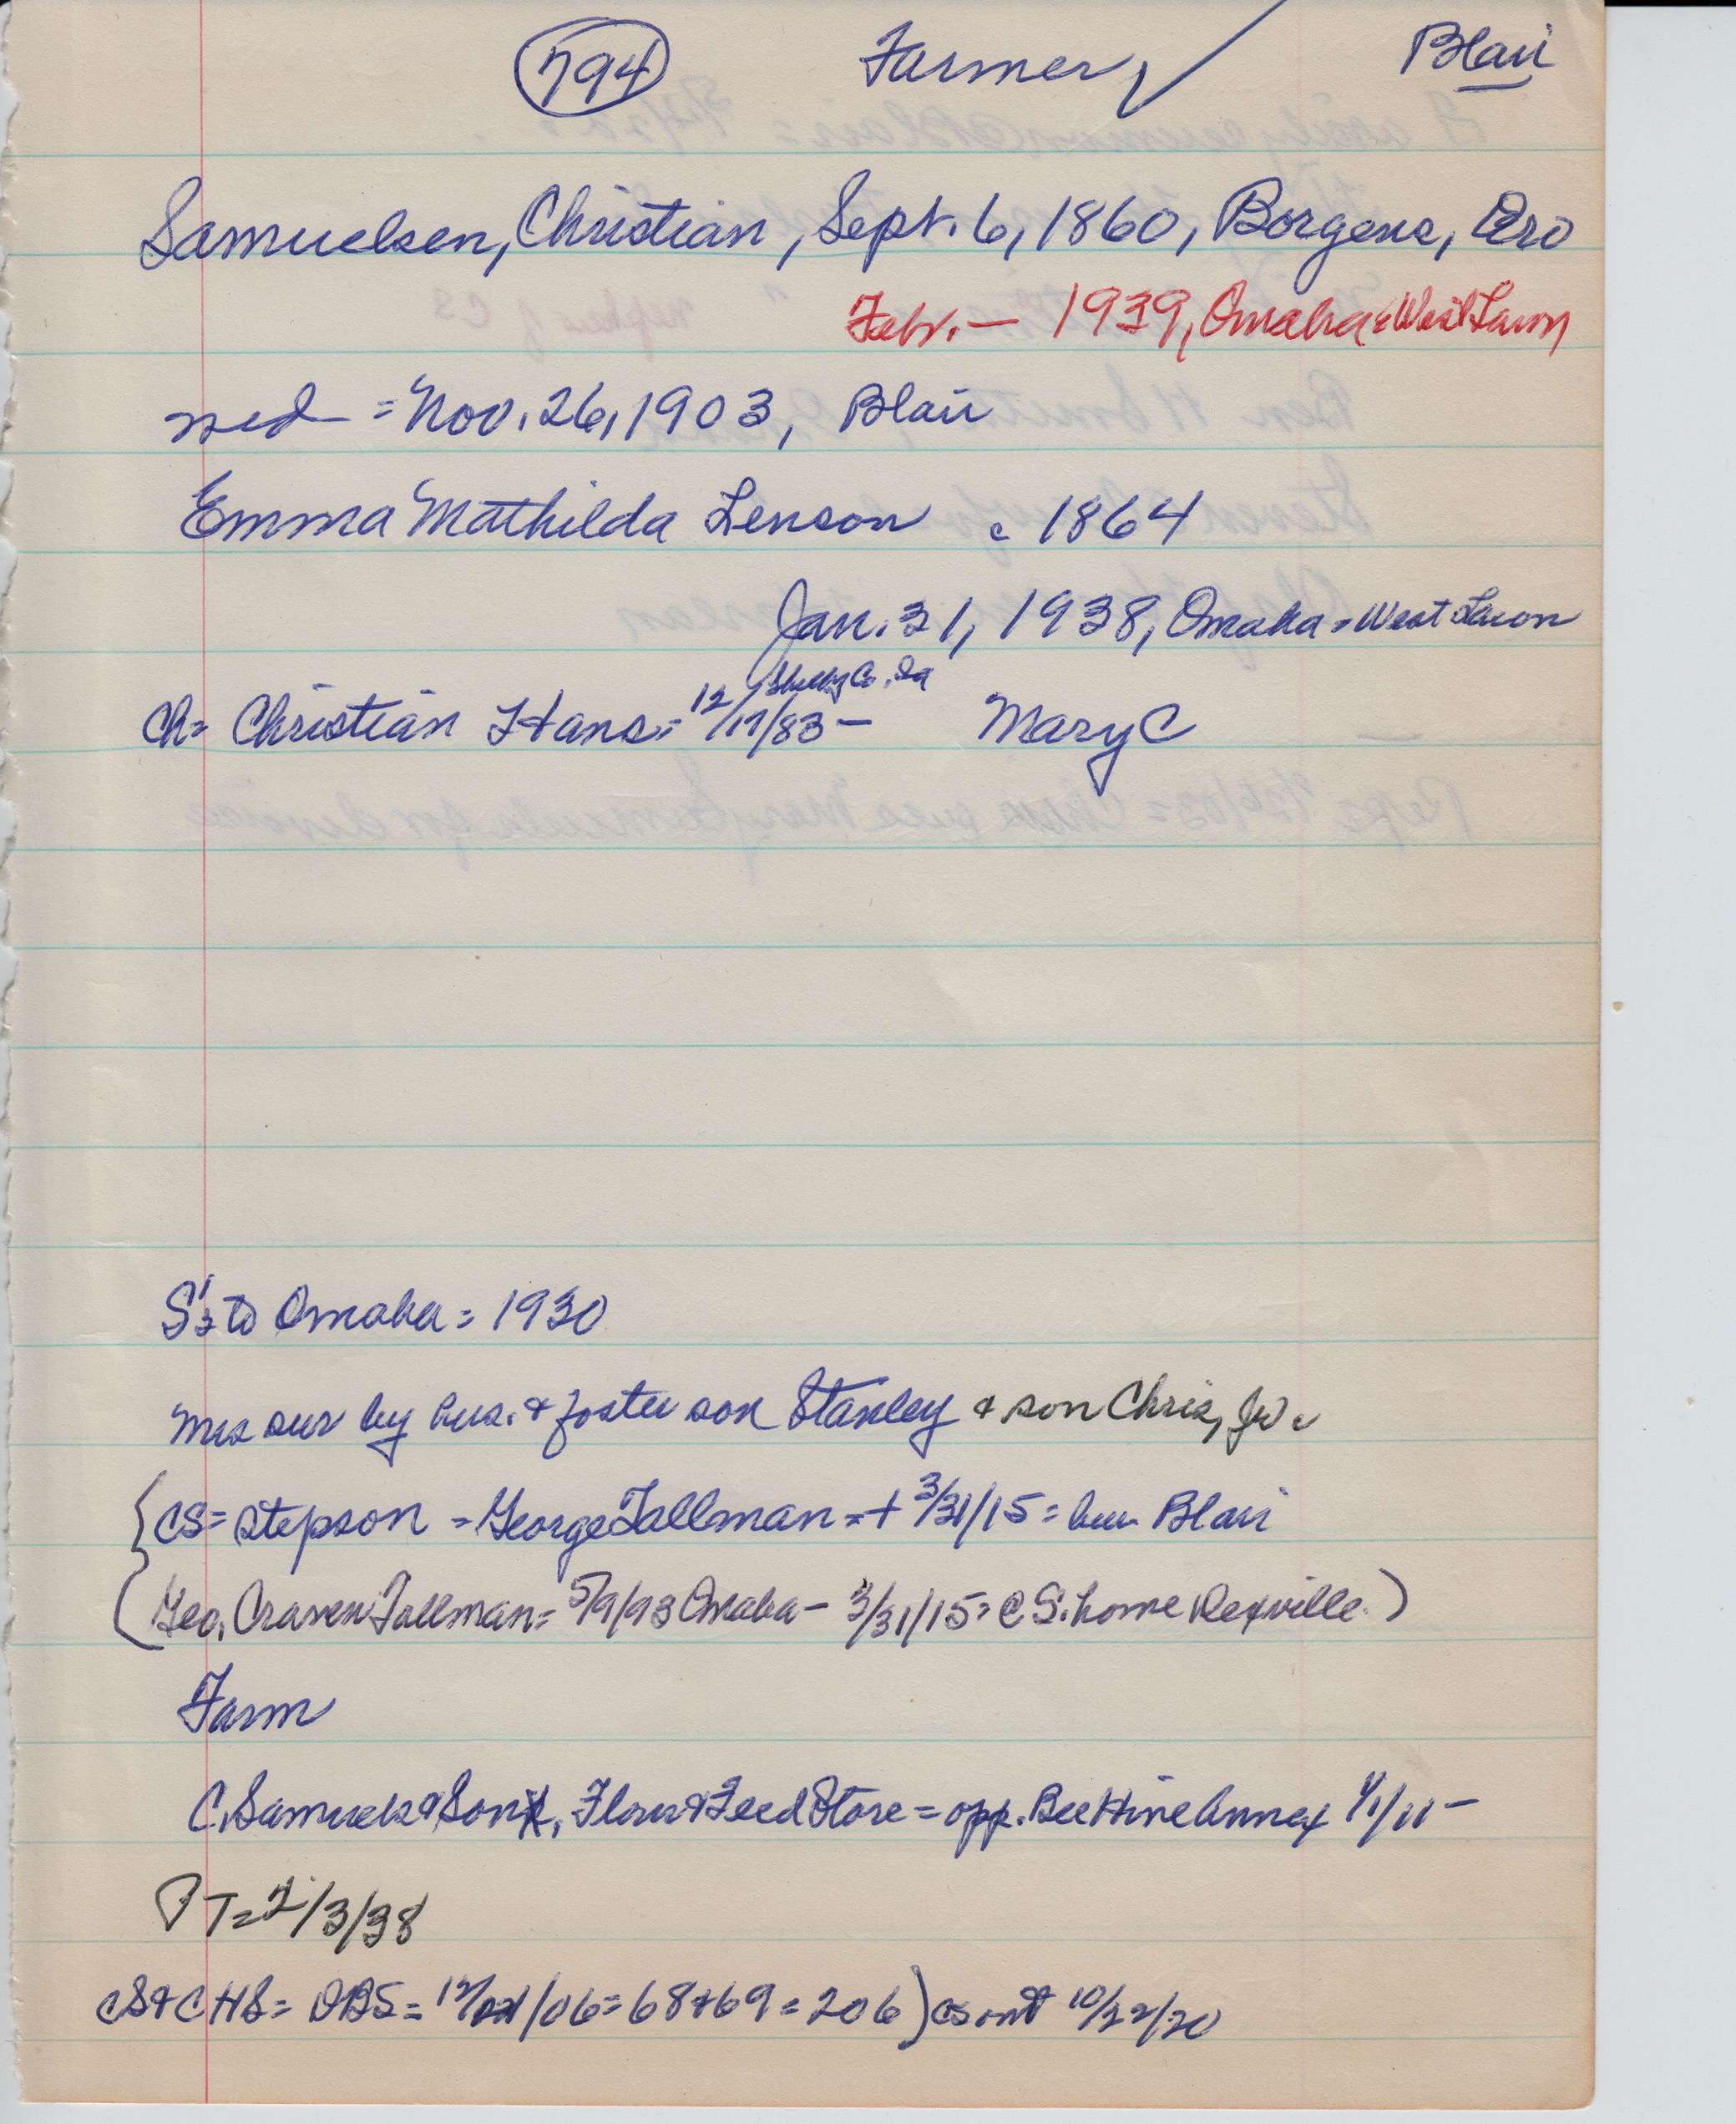 794 Farmer ✓ Blair
Samuelsen, Christian, Sept. 6, 1860, Borgene, Ero
Febr. — 1939, Omaha = West Lawn
wed = Nov. 26, 1903, Blair
Emma Mathilda Lenson c 1864
Jan. 31, 1938, Omaha = West Lawn
Shelby Co. Ia
ch = Christian Hans = 12/17/83 — Mary C
S's to Omaha = 1930
Mrs sur by hus. & foster son Stanley & son Chris, Jr.
{CS = stepson = George Tallman = + 3/31/15 = bur Blair
(Geo. Craven Tallman = 5/9/93 Omaha — 3/31/15 = CS. home Dexville.)
Farm
C. Samuels & Son, Flour & Feed Store = opp. Bee Hive Annex 1/1/11 —
PT = 2/3/38
CS & CHS = DBS = /06 = 68 + 69 = 206) CS 10/22/20